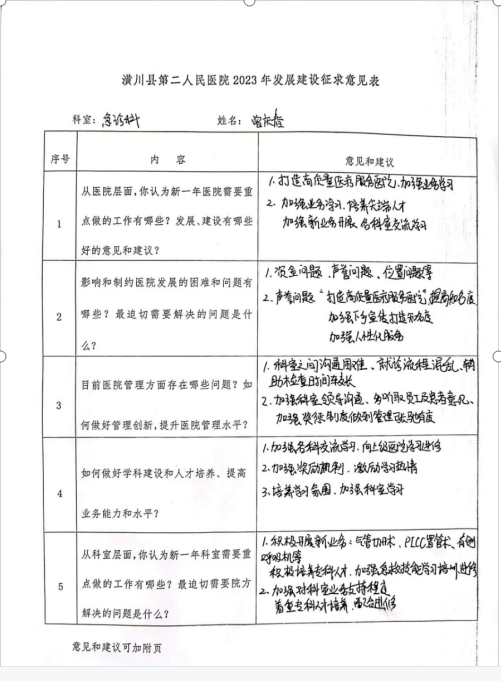 潢川县第二人民医院 2023 年发展建设征求意见表
科室：急诊科 姓名：
序号 内 容 意见和建议
1 从医院层面，你认为新一年医院需要重
点做的工作有哪些？发展、建设有哪些
好的意见和建议？
1. 打造高质量医疗服务医院，加强业务学习
2. 加强业务学习、培养尖端人才
加强新业务开展、各科室交流学习
2 影响和制约医院发展的困难和问题有
哪些？最迫切需要解决的问题是什
么？
1. 资金问题、声誉问题、位置问题等
2. 声誉问题“打造高质量医疗服务医院”，提高知名度
加强下乡宣传打造知名度
加强人性化服务
3 目前医院管理方面存在哪些问题？如
何做好管理创新，提升医院管理水平？
1. 科室之间沟通困难、就诊流程混乱、辅
助检查时间较长
2. 加强科室领导沟通、多听取员工及患者意见、
加强奖惩制度做到管理张弛有度
4 如何做好学科建设和人才培养、提高
业务能力和水平？
1. 加强各科交流学习、向上级医院学习进修
2. 加强奖励机制、激励学习热情
3. 培养学习氛围、加强科室学习
5 从科室层面，你认为新一年科室需要重
点做的工作有哪些？最迫切需要院方
解决的问题是什么？
1. 积极开展新业务：气管切开术、PICC置管术、有创
呼吸机等
积极培养专科人才、加强各种技能学习培训，进修
2. 加强对科室业务支持程度
着重专科人才培养、
意见和建议可加附页